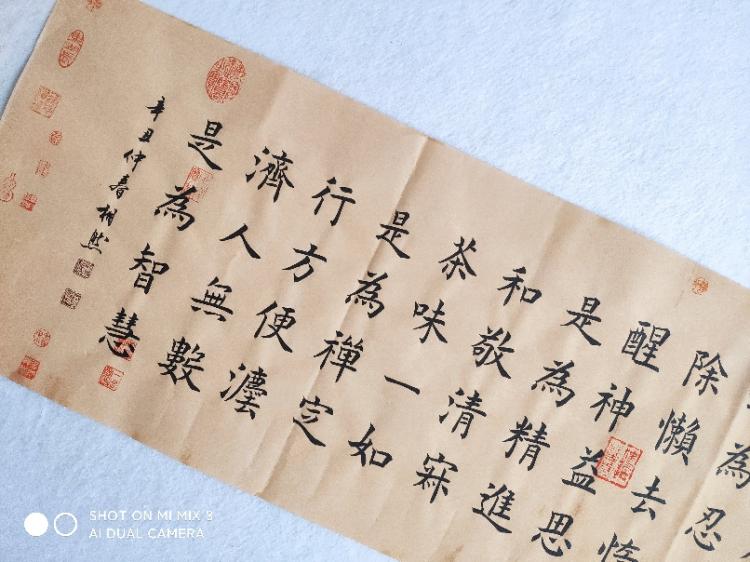 為忍
除懶去惰
醒神益思
是為精進
和敬清寂
茶味一如
是為禪定
行方便灋
濟人無數
是為智慧
辛丑仲春栩然
SHOT ON MI MIX 3
AI DUAL CAMERA